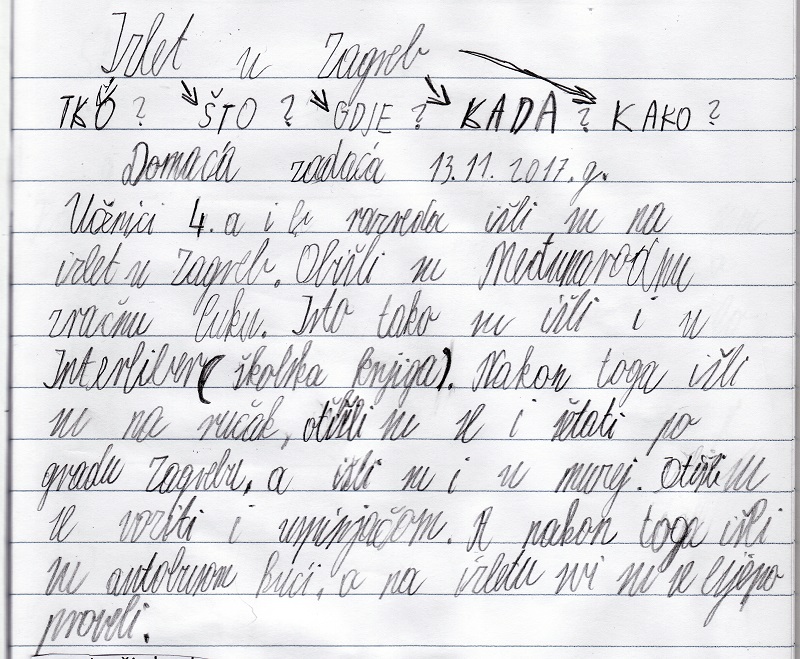 Izlet u Zagreb
TKO? ŠTO? GDJE? KADA? KAKO?
Domaća zadaća 13.11.2017.g.
Učenici 4.a i b razreda išli su na
izlet u Zagreb. Obišli su Međunarodnu
zračnu luku. Isto tako su išli i u
Interliber (školska knjiga). Nakon toga išli
su na ručak, otišli su se i šetati po
gradu Zagrebu, a išli su i u muzej. Otišli su
se voziti i uspinjačom. A nakon toga išli
su autobusom kući, a na izletu svi su se lijepo
proveli.